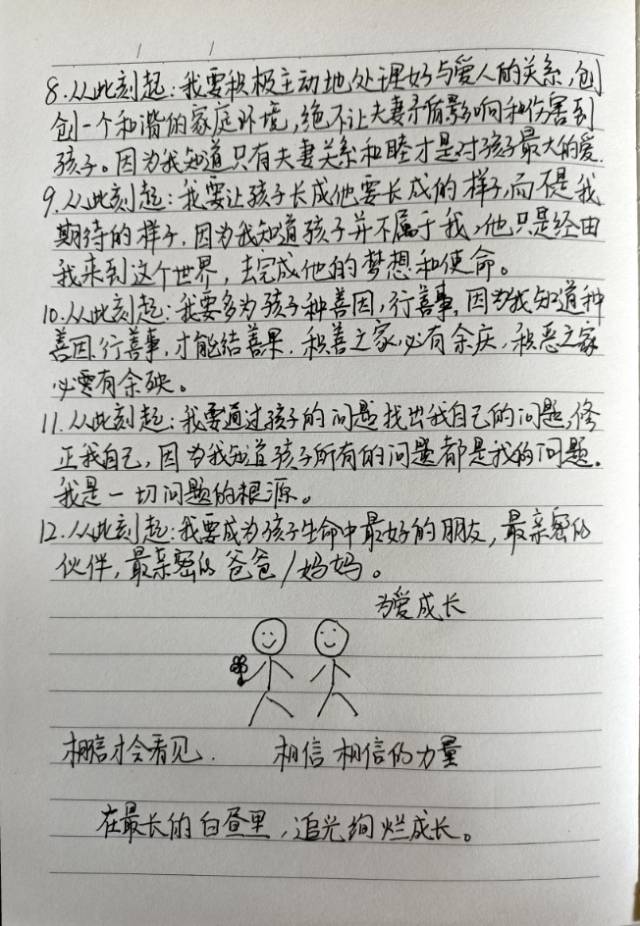 8.从此刻起:我要积极主动地处理好与爱人的关系,创
创一个和谐的家庭环境,绝不让夫妻矛盾影响和伤害到
孩子。因为我知道只有夫妻关系和睦才是对孩子最大的爱.
9.从此刻起:我要让孩子长成他要长成的样子,而不是我
期待的样子.因为我知道孩子并不属于我,他只是经由
我来到这个世界,去完成他的梦想和使命。
10.从此刻起:我要多为孩子种善因,行善事.因为我知道种
善因.行善事,才能结善果.积善之家必有余庆,积恶之家
必要有余殃。
11.从此刻起:我要通过孩子的问题找出我自己的问题,修
正我自己,因为我知道孩子所有的问题都是我的问题.
我是一切问题的根源。
12.从此刻起:我要成为孩子生命中最好的朋友,最亲密的
伙伴,最亲密的爸爸/妈妈。
为爱成长
相信才会看见. 相信相信的力量
在最长的白昼里,追光绚烂成长。